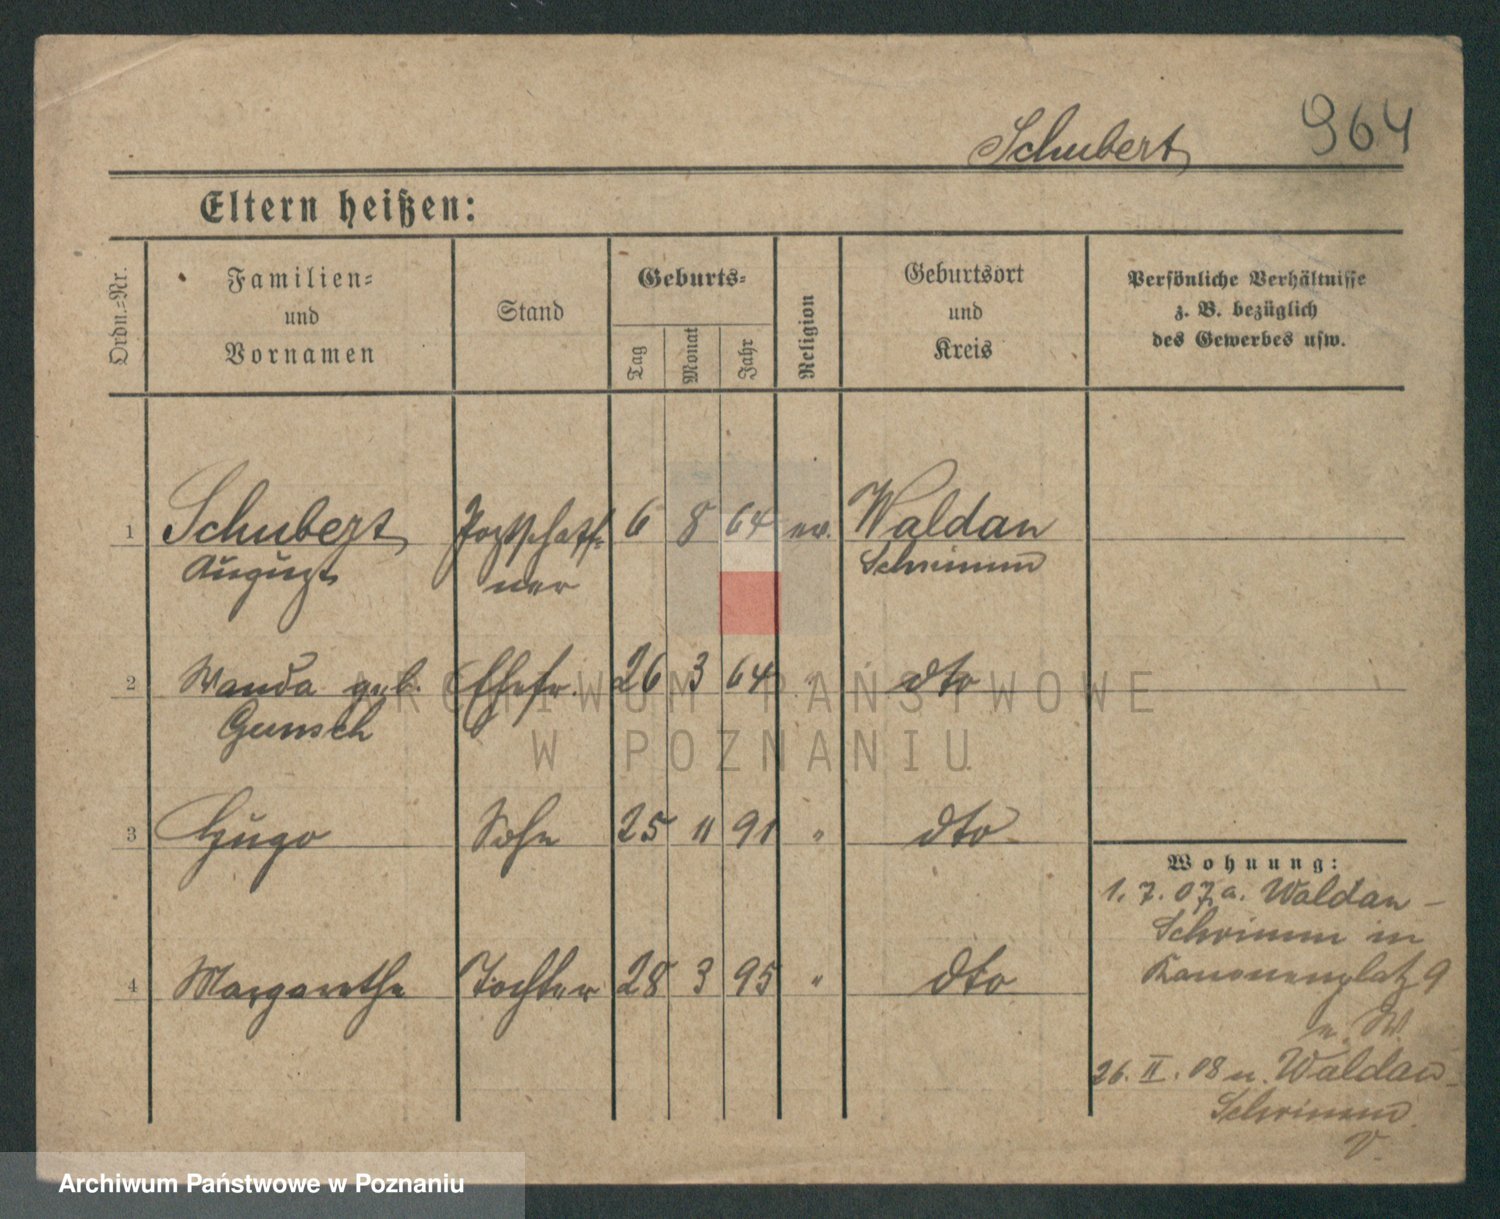 Schubert 964
Eltern heißen:
Ordn.-Nr.
Familien-
und
Vornamen
Stand
Geburts-
Tag
Monat
Jahr
Religion
Geburtsort
und
Kreis
Persönliche Verhältnisse
z. B. bezüglich
des Gewerbes usw.
1 Schubert Postschaff- 6 8 64 ev. Waldau
August ner Schrimm
2 Wanda geb. Ehefr. 26 3 64 " dto
Gunsch
3 Hugo Sohn 25 11 91 " dto
4 Margarethe Tochter 28 3 95 " dto
Wohnung:
1. 7. 07 a. Waldau -
Schrimm in
Kanonenplatz 9
26. II. 08 n. Waldau -
Schrimm.
V.
ARCHIWUM PAŃSTWOWE
W POZNANIU
Archiwum Państwowe w Poznaniu